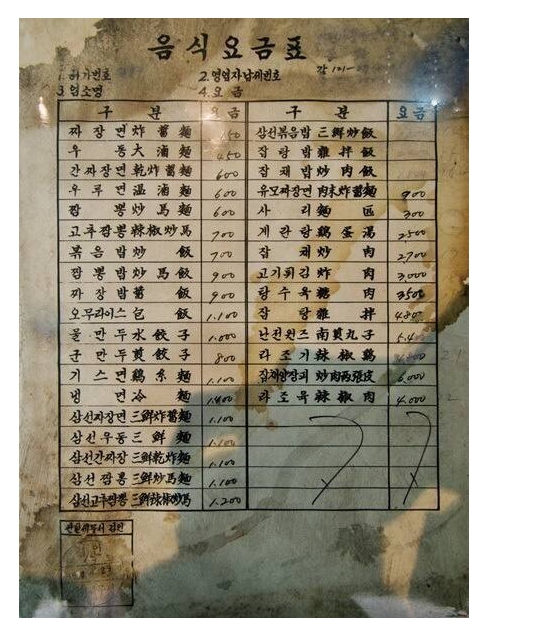 음식요금표
1. 허가번호 2. 영업자납세번호
3. 업소명 4. 요금
구 분 요금 구 분 요금
짜장면 炸醬麵 450 삼선볶음밥 三鮮炒飯
우동 大滷麵 450 잡탕밥 雜拌飯
간짜장면 乾炸醬麵 600 잡채밥 炒肉飯
우루면 溫滷麵 600 유모짜장면 肉末炸醬麵 900
짬뽕 炒馬麵 600 사리 麵 300
고추짬뽕 辣椒炒馬 700 계란탕 鷄蛋湯 2500
볶음밥 炒飯 700 잡채 炒肉 2,700
짬뽕밥 炒馬飯 900 고기튀김 炸肉 3,000
짜장밥 醬飯 900 탕수육 糖肉 3500
오무라이스 包飯 1.100 잡탕 雜拌 4800
물만두 水餃子 1.000 난전완즈 南煎丸子
군만두 煎餃子 800 라조기 辣椒鷄
기스면 鷄糸麵 1.100 잡채양장피 炒肉両張皮 6,000
냉면 冷麵 1.400 라조육 辣椒肉 4.000
삼선짜장면 三鮮炸醬麵 1.100
삼선우동 三鮮麵 1.100
삼선간짜장 三鮮乾炸麵 1.100
삼선짬뽕 三鮮炒馬麵 1.100
삼선고추짬뽕 三鮮辣椒炒馬 1.200